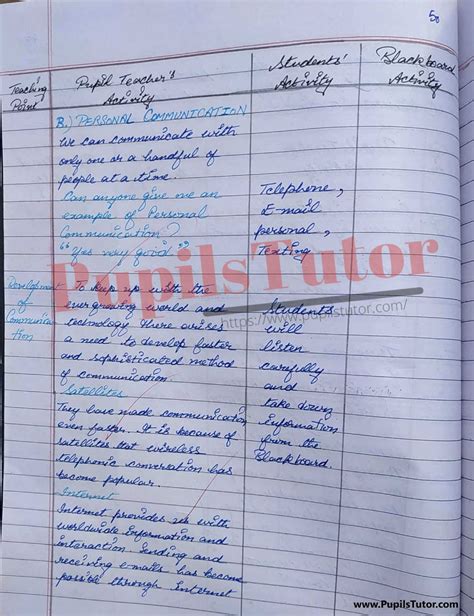 50
Teaching Point
Pupil Teacher's Activity
Students' Activity
Blackboard Activity
B.) PERSONAL COMMUNICATION
We can communicate with
only one or a handful of
people at a time.
Can anyone give me an
example of Personal
Communication?
"Yes very good"
Telephone,
E-mail
personal,
Texting
Development
of
Communica-
tion
To keep up with the
evergrowing world and
technology there arises
a need to develop faster
and sophisticated method
of communication.
Students
will
listen
carefully
and
take down
information
from the
Blackboard.
Satellites
They have made communication
even faster. It is because of
satellites that wireless
telephonic conversation has
become popular.
Internet
Internet provides us with
worldwide information and
interaction. Sending and
receiving e-mails has become
possible through Internet
PupilsTutor
https://www.pupilstutor.com/
www.PupilsTutor.com